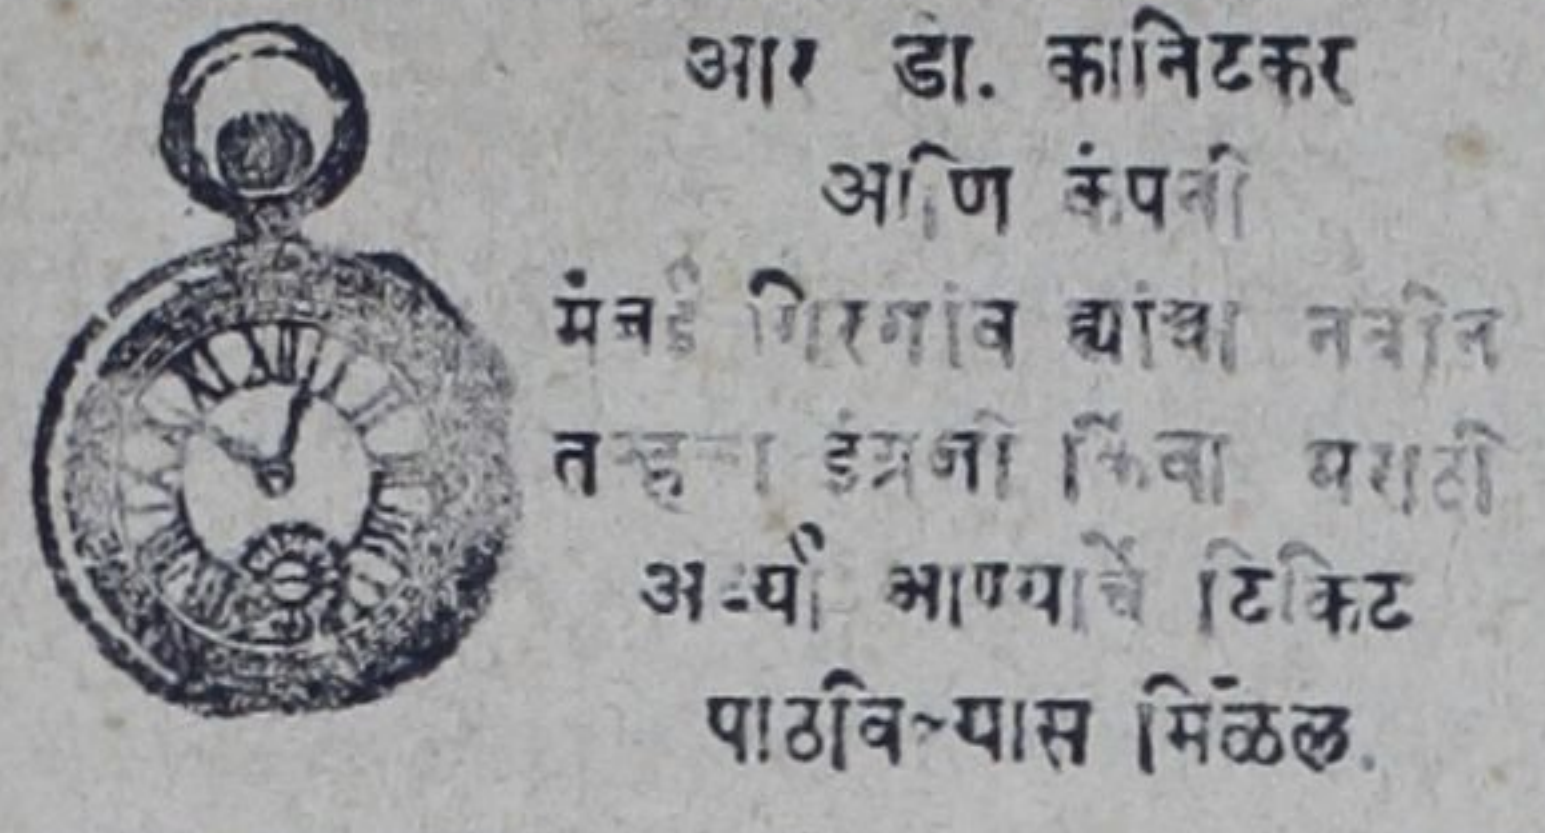 आर डी. कानिटकर
आणि कंपनी
मुंबई गिरगांव ह्यांचा नवीन
इंग्रजी किंवा मराठी
अर्ध्या आण्याचें टिकिट
पाठविल्यास मिळेल.